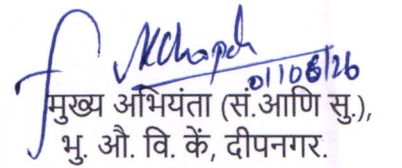 01/06/26
मुख्य अभियंता (सं.आणि सु.),
भु. औ. वि. कें, दीपनगर.